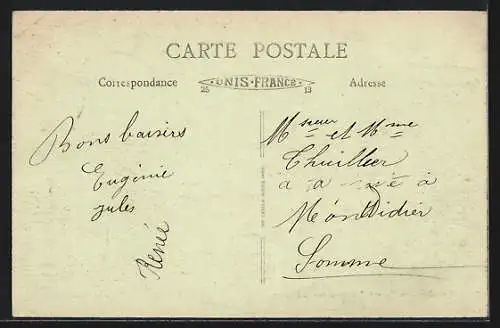 CARTE POSTALE
Correspondance
UNIS-FRANCE
25 13
Adresse
Bons baisers
Eugénie
Jules
Renée
Msieur et Mme
Thuillier
à
Montdidier
Somme